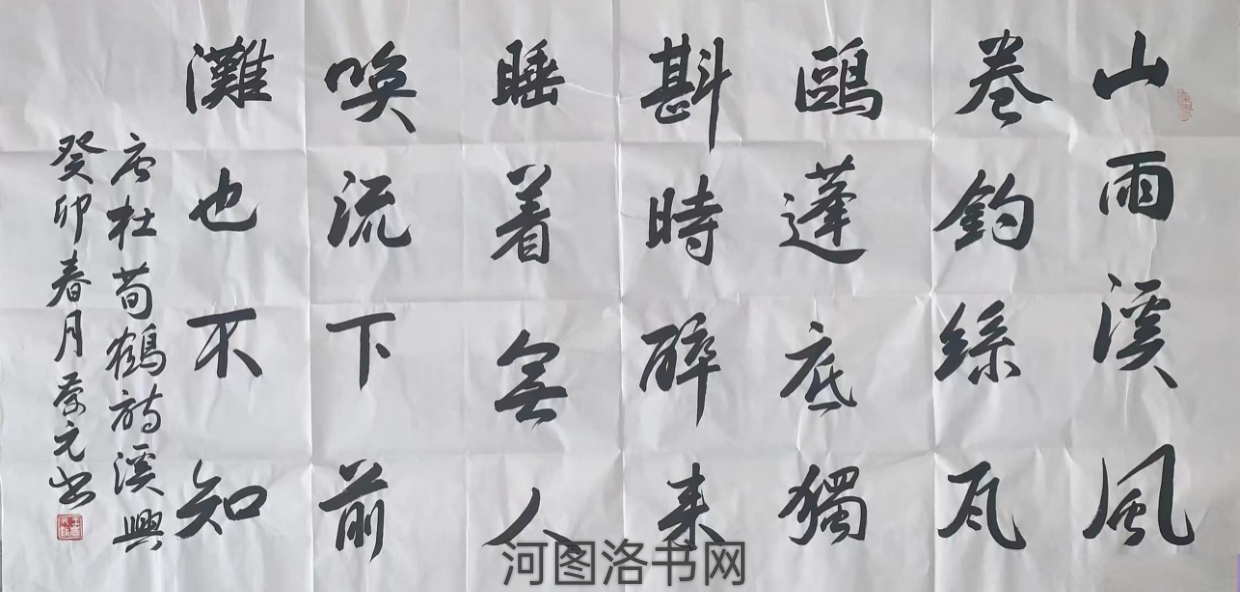 山雨溪風
卷釣絲瓦
鷗蓬底獨
斟時醉来
睡着無人
唤流下前
灘也不知
唐杜荀鶴詩溪興
癸卯春月荣元书
河图洛书网